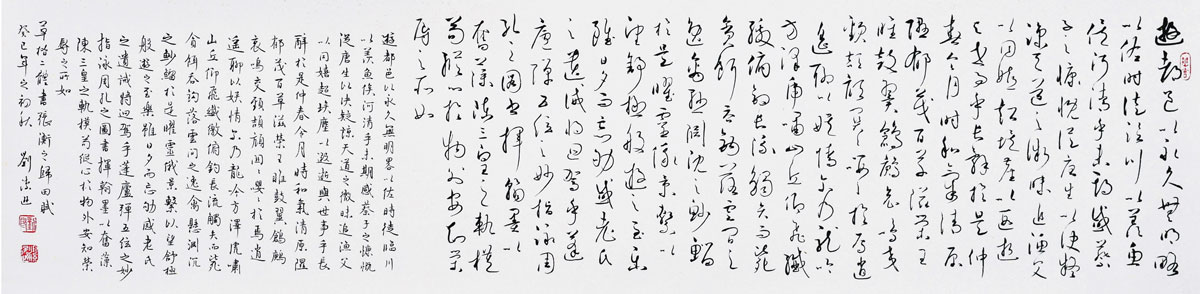 遊都邑以永久無明略
以佐時徒臨川以羨魚
俟河清乎未期感蔡
子之慷慨從唐生以決疑
諒天道之微昧追漁父
以同嬉超埃塵以遐逝
與世事乎長辭於是仲
春令月時和氣清原
隰郁茂百草滋榮王
雎鼓翼鶬鶊哀鳴交
頸頡頏關關嚶嚶於焉逍
遙聊以娛情爾乃龍吟
方澤虎嘯山丘仰飛纖
繳俯釣長流觸矢而斃
貪餌吞鉤落雲間之
逸禽懸淵沉之鯊鰡
於是曜靈俄景繫以
望舒極般遊之至樂
雖日夕而忘劬感老氏
之遺誡將迴駕乎蓬
廬彈五弦之妙指詠周
孔之圖書揮翰墨以
奮藻陳三皇之軌模
苟縱心於物外安知榮
辱之所如
遊都邑以永久無明略以佐時徒臨川
以羨魚俟河清乎未期感蔡子之慷慨
從唐生以決疑諒天道之微昧追漁父
以同嬉超埃塵以遐逝與世事乎長
辭於是仲春令月時和氣清原隰
郁茂百草滋榮王雎鼓翼鶬鶊
哀鳴交頸頡頏關關嚶嚶於焉逍
遙聊以娛情爾乃龍吟方澤虎嘯
山丘仰飛纖繳俯釣長流觸矢而斃
貪餌吞鉤落雲間之逸禽懸淵沉
之鯊鰡於是曜靈俄景繫以望舒極
般遊之至樂雖日夕而忘劬感老氏
之遺誡將迴駕乎蓬廬彈五弦之妙
指詠周孔之圖書揮翰墨以奮藻
陳三皇之軌模苟縱心於物外安知榮
辱之所如
草楷二體書張衡之歸田賦
癸巳年之初秋 劉